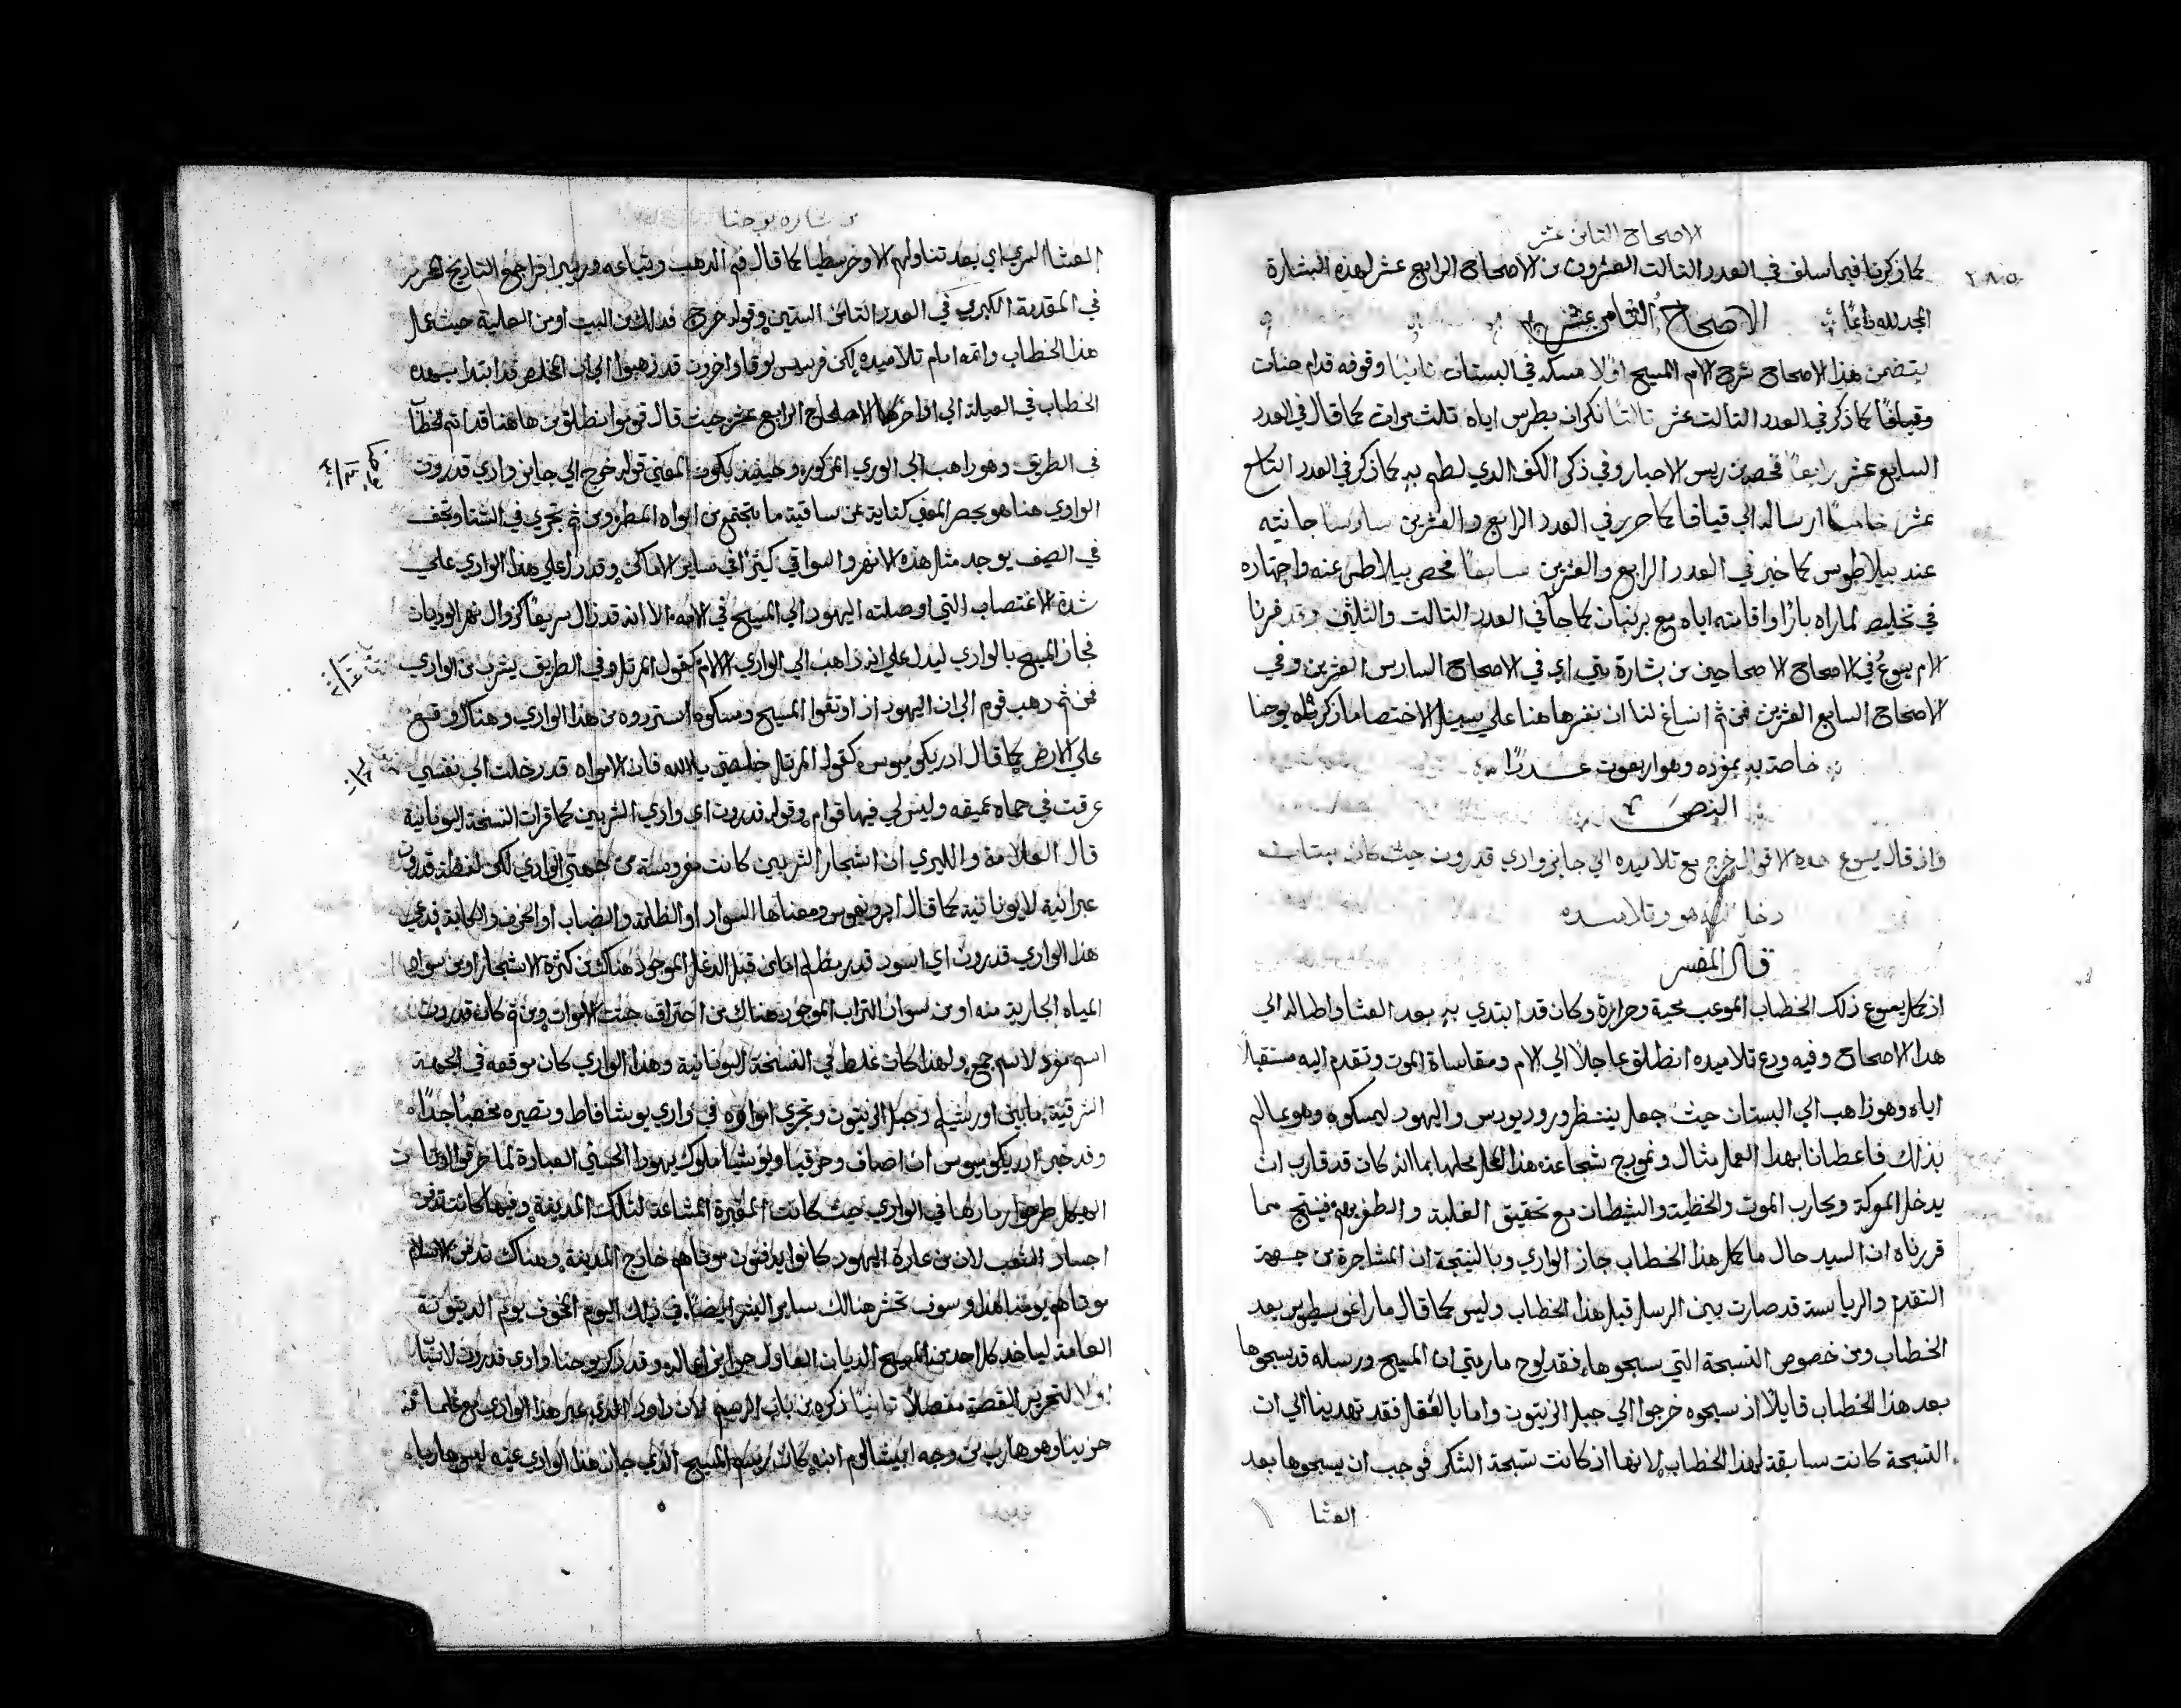 الاصحاح الثامن عشر
٢٨٥
كما ذكرنا فيما سلف في العدد الثالث العشرون من الاصحاح الرابع عشر لهذه البشارة
المجد لله دايمًا
الاصحاح الثامن عشر
يتضمن هذا الاصحاح شرح الام المسيح اولًا مسكه في البستان ثانيًا وقوفه قدام حنان
وقيافا كما ذكر في العدد الثالث عشر ثالثًا نكران بطرس اياه ثلث مرات كما قال في العدد
السابع عشر رابعًا فحصه من ريس الاحبار وفي ذكر الكف الذي لطم به كما ذكر في العدد التاسع
عشر خامسًا ارساله الي قيافا كما حرر في العدد الرابع والعشرين سادسًا جانيته
عند بيلاطوس كما خبر في العدد الرابع والعشرين سابعًا فحص بيلاطس عنه واجتهاده
في تخليصه لما راه بارًا واقامته اياه مع برنبان كما جا في العدد الثالث والثلثين وقد فسرنا
الام يسوع في الاصحاح الاصحاحين من بشارة متي اي في الاصحاح السادس العشرين وفي
الاصحاح السابع العشرين فمن ثم انساغ لنا ان نفسرها هنا علي سبيل الاختصار ما ذكره يوحنا
خاصة به بمفرده وهو اربعون عددًا
النص
واذ قال يسوع هذه الاقوال خرج مع تلاميذه الي جايز وادي قدرون حيث كان بستان
دخل اليه هو وتلاميذه
قال المفسر
اذ كمل يسوع ذلك الخطاب الموعب محبة وحرارة وكان قد ابتدي به بعد العشا واطاله الي
هذا الاصحاح وفيه ودع تلاميذه انطلق عاجلًا الي الام ومقاساة الموت وتقدم اليه مستقبلًا
اياه وهو ذاهب الي البستان حيث جعل ينتظر ورود يودس واليهود ليمسكوه وهو عالم
بذلك فاعطانا بهذا العمل مثال ونموذج شجاعته هذا محلها بما انه كان قد قارب ان
يدخل المعركة ويحارب الموت والخطية والشيطان مع تحقيق الغلبة والظفر بهم فينتج مما
قررناه ان السيد حال ما كمل هذا الخطاب جاز الوادي وبالنتيجة ان المشاجرة من جهة
التقدم والرياسة قد صارت بين الرسل قبل هذا الخطاب وليس كما قال مار اغوسطينس بعد
الخطاب ومن خصوص التسبحة التي سبحوها فقد لوح مار متي ان المسيح ورسله قد سبحوها
بعد هذا الخطاب قايلًا اذ سبحوه خرجوا الي جبل الزيتون واما بالعقل فقد تهدينا الي ان
التسبحة كانت سابقة لهذا الخطاب لانها اذ كانت تسبحة الشكر فوجب ان يسبحوها بعد
العشا
من بشارة يوحنا
العشا السري اي بعد تناولهم الاوخرسطيا كما قال فم الذهب
في المقدمة الكبري في العدد الثاني الستين وقوله خرج قد من البيت او من العلية حيث عمل
هذا الخطاب واتمه امام تلاميذه لكن فرنسيس لوقا واخرون قد ذهبوا الي ان المخلص قد ابتدا بهذا
الخطاب في العيلة الي اواخر الاصحاح الرابع عشر حيث قال قوموا ننطلق من هاهنا قد اتم الخطاب
في الطريق وهو راهب الي الوادي المذكور وحينيذ يكون المعني قوله خرج الي جايز وادي قدرون
الوادي هنا هو بحصر المعني كناية عن ساقية ما يتجتمع من امواه المطر ومن ثم تجري في الشتا وتجف
في الصيف يوجد مثل هذه الانهر والسواقي كثيرًا في ساير الاماكن وقد دل هذا الوادي علي
شدة الاغتصاب التي اوصلته اليهود الي المسيح في الامه الا انه قد زال سريعًا كزوال نهر الوديان
فجاز المسيح بالوادي ليدل علي انه ذاهب الي الوادي الالام كقول المرتل وفي الطريق يشرب من الوادي
فمن ثم ذهب قوم الي ان اليهود اذ اوثقوا المسيح ومسكوه استردوه من هذا الوادي وهناك وقع
علي الارض كما قال ادريكوميوس كقول المرتل خلصني يا الله فان الامواه قد دخلت الي نفسي
غرقت في حماه عميقه وليس لي فيها قوام وقوله قدرون اي وادي الشربين كما قرات النسخة اليونانية
قال العلامة والليري ان اشجار الشربين كانت مغروسة من جهتي الوادي لكن لفظة قدرون
عبرانية لا يونانية كما قال ايرونيموس ومعناها السواد او الظلمة والضباب او الحزن والكابة فدعي
هذا الوادي قدرون اي اسود قدر مظلم اما من قبل الدغل الموجود هناك من كثرة الاشجار او من سواد
المياه الجارية منه او من سواد التراب الموجود هناك من احتراق جثث الاموات ومن ثم كان قدرون
اسم مفرد لا اسم جمع ولهذا كان غلط في النسخة اليونانية وهذا الوادي كان موقعه في الجهة
الشرقية ما بين اورشليم وجبل الزيتون وتجري امواهه في وادي يوشافاط وتصيره مخصبًا جدًا
وقد خبر ادريكوميوس ان اصاف وحزقيا ويوشيا ملوك يهودا الحسني العبادة لما حرقوا اوثان
الهيكل طرحوا رمادها في الوادي حيث كانت المقبرة المشاعة لتلك المدينة وفيها كانت تدفن
اجساد الشعب لان من عادة اليهود كانوا يدفنون موتاهم خارج المدينة وهناك تدفن الاسلام
موتاهم يومنا هذا وسوف تحشر هنالك ساير البشر ايضًا في ذلك اليوم المخوف يوم الدينونة
العامة لياخذ كل احد من المسيح الديان العادل جزا اعماله وقد ذكر يوحنا وادي قدرون لاسباب
اولًا لتحرير القصة مفصلًا ثانيًا ذكره من باب الرسم لان داود الذي عبر هذا الوادي مع غلمانه
حزينا وهو هارب من وجه ابيشالوم ابنه كان يرسم المسيح الذي جاز هذا الوادي عينه ليس هاربًا